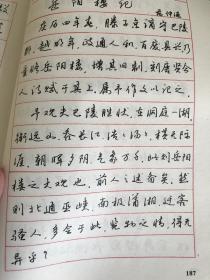 岳阳楼记
范仲淹
庆历四年春，滕子京谪守巴陵
郡，越明年，政通人和，百废具兴，乃
重修岳阳楼，增其旧制，刻唐贤今
人诗赋于其上，属予作文以记之。
予观夫巴陵胜状，在洞庭一湖。
衔远山，吞长江，浩〻汤〻，横无际
涯，朝晖夕阴，气象万千，此则岳阳
楼之大观也，前人之述备矣。然
则北通巫峡，南极潇湘，迁客
骚人，多会于此，览物之情，得无
异乎？
187